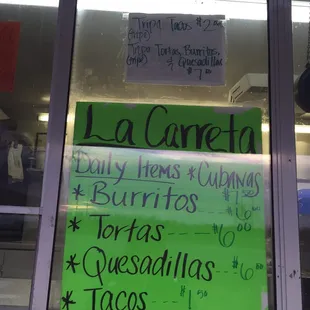 Tripa Tacos $2.00
(mpr)
Tripa Tortas, Burritos,
(mpr) & Quesadillas
$7
La Carreta
Daily Items *Cubanas
$7.50
* Burritos $6.00
* Tortas $6.00
* Quesadillas $6.00
* Tacos $1.50